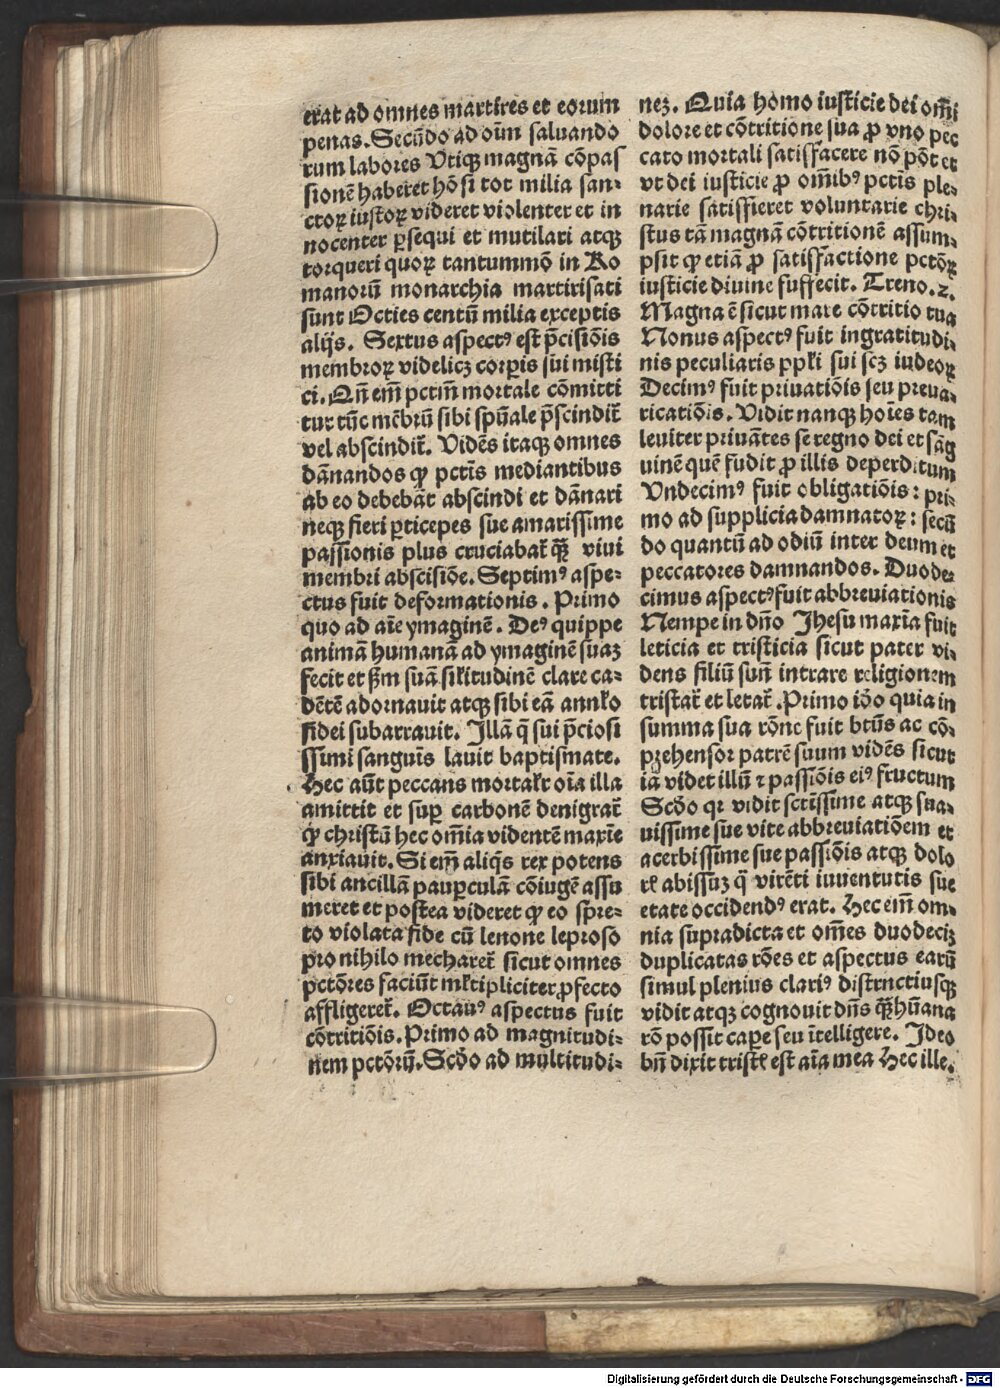 erat ad omnes martires et eorum
penas. Secūdo ad oīm saluando
rum labores Vtiqꝫ magnā cōpas
sionē haberet hō si tot milia san⸗
ctoꝝ iustoꝝ videret violenter et in
nocenter ꝑsequi et mutilari atqꝫ
torqueri quoꝝ tantummō in Ro
manorū monarchia martirisati
sunt Octies centū milia exceptis
alijs. Sextus aspectꝰ est p̄cisiōis
membroꝝ videlicꝫ corꝑis sui misti
ci. Qn̄ em̄ pctm̄ mortale cōmitti
tur tūc mēbrū sibi spūale p̄scindit̄
vel abscindit̄. Vidēs itaqꝫ omnes
dānandos ꝙ pctīs mediantibus
ab eo debebāt abscindi et dānari
neqꝫ fieri ꝑticepes sue amarissime
passionis plus cruciabat̄ qꝫ̄ viui
membri abscisiōe. Septimꝰ aspe⸗
ctus fuit deformationis. Primo
quo ad aīe ymaginē. Deꝰ quippe
animā humanā ad ymaginē suaꝫ
fecit et ẜm suā sil̄itudinē clare ca⸗
dētē adornauit atqꝫ sibi eā annl̄o
fidei subarrauit. Illā q̄ sui p̄ciosi
ssimi sanguīs lauit baptismate.
Hec aūt peccans mortal̄r oīa illa
amittit et suꝑ carbonē denigrat̄
ꝙ christū hec om̄ia videntē maxīe
anxiauit. Si em̄ aliq̄s rex potens
sibi ancillā pauꝑculā cōiugē assu
meret et postea videret ꝙ eo sp̄re⸗
to violata fide cū lenone leproso
pro nihilo mecharet̄ sicut omnes
pctōres faciūt ml̄tipliciter ꝓfecto
affligeret̄. Octauꝰ aspectus fuit
cōtritiōis. Primo ad magnitudi⸗
nem pctōrū. Scd̄o ad multitudi⸗
neꝫ. Quia homo iusticie dei om̄i
dolore et cōtritione sua ꝓ vno pec
cato mortali satisfacere nō pōt et
vt dei iusticie ꝓ om̄ibꝰ pctīs ple⸗
narie satisfieret voluntarie chri⸗
stus tā magnā cōtritionē assum⸗
psit ꝙ etiā ꝓ satisfactione pctōꝝ
iusticie diuine suffecit. Treno.2.
Magna ē sicut mare cōtritio tua
Nonus aspectꝰ fuit ingratitudi⸗
nis peculiaris ppl̄i sui scꝫ iudeoꝝ
Decimꝰ fuit priuatiōis seu preua⸗
ricatiōis. Vidit nanqꝫ hoīes tam
leuiter priuātes se regno dei et sāg
uinē quē fudit ꝓ illis deperditum
Vndecimꝰ fuit obligatiōis: pri⸗
mo ad supplicia damnatoꝝ: secū
do quantū ad odiū inter deum et
peccatores damnandos. Duode⸗
cimus aspectꝰ fuit abbreuiationis
Nempe in dn̄o Jhesu maxīa fuit
leticia et tristicia sicut pater vi⸗
dens filiū suū intrare religionem
tristat̄ et letat̄. Primo iō̄o quia in
summa sua rōne fuit btūs ac cō⸗
p̄hensor patrē suum vidēs sicut
iā videt illū ⁊ passiōis eiꝰ fructum
Scd̄o qꝛ vidit sctīssime atqꝫ sua⸗
uissime sue vite abbreuiatiōem et
acerbissime sue passiōis atqꝫ dolo
rꝭ abissuꝫ q̄ virēti iuuentutis sue
etate occidendꝰ erat. Hec em̄ om⸗
nia supradicta et om̄es duodeciꝫ
duplicatas rōes et aspectus earū
simul plenius clariꝰ distinctiusqꝫ
vidit atqꝫ cognouit dn̄s qꝫ̄ hūana
rō possit caꝑe seu ītelligere. Ideo
bn̄ dixit tristꝭ est aīa mea Hec ille.
Digitalisierung gefördert durch die Deutsche Forschungsgemeinschaft - DFG